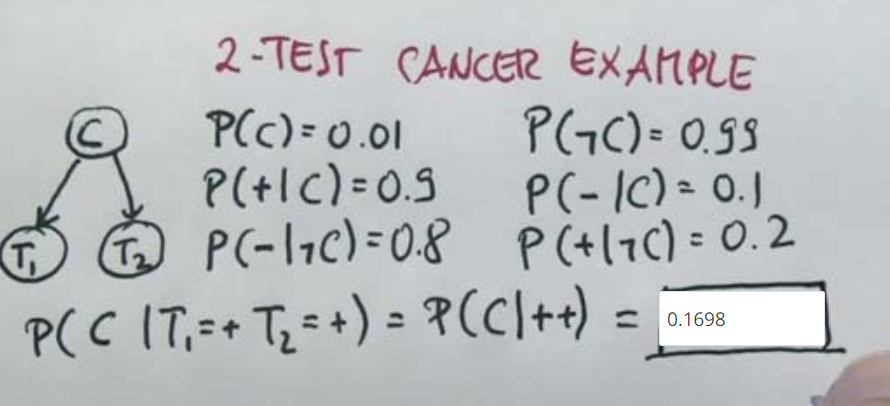 2-TEST CANCER EXAMPLE
C P(C)=0.01 P(¬C)=0.99
P(+|C)=0.9 P(-|C)=0.1
T₁ T₂ P(-|¬C)=0.8 P(+|¬C)=0.2
P(C|T₁=+ T₂=+) = P(C|++) = 0.1698